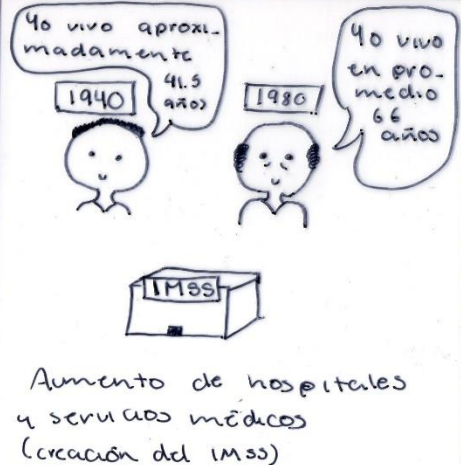 Yo vivo aproxi-
madamente
41.5
años
1940
Yo vivo
en pro-
medio
66
años
1980
IMSS
Aumento de hospitales
y servicios médicos
(creación del IMSS)